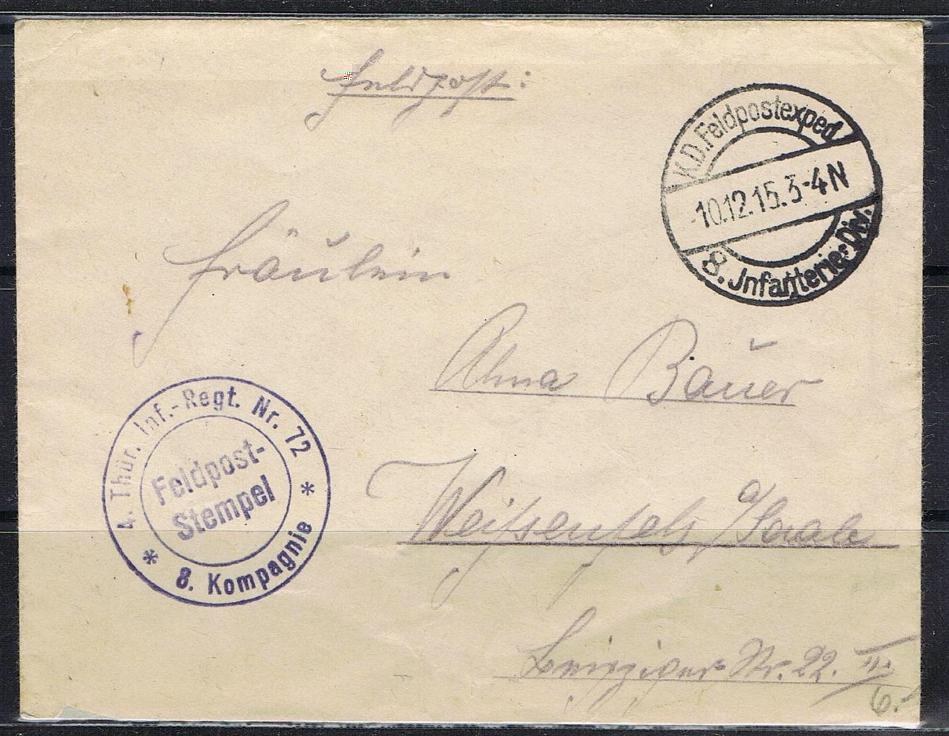 Feldpost:
K.D.Feldpostexped.
10.12.15.3-4N
8. Infanterie-Div.
Fräulein
Alma Bauer
Weißenfels a/Saale
Leipziger Str. 22. II.
6.-
4. Thür. Inf.-Regt. Nr. 72
Feldpost-
Stempel
* 8. Kompagnie *